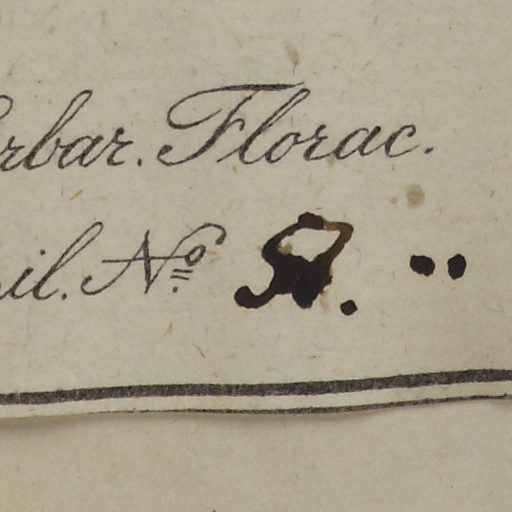 rbar. Florac.
il. Nº